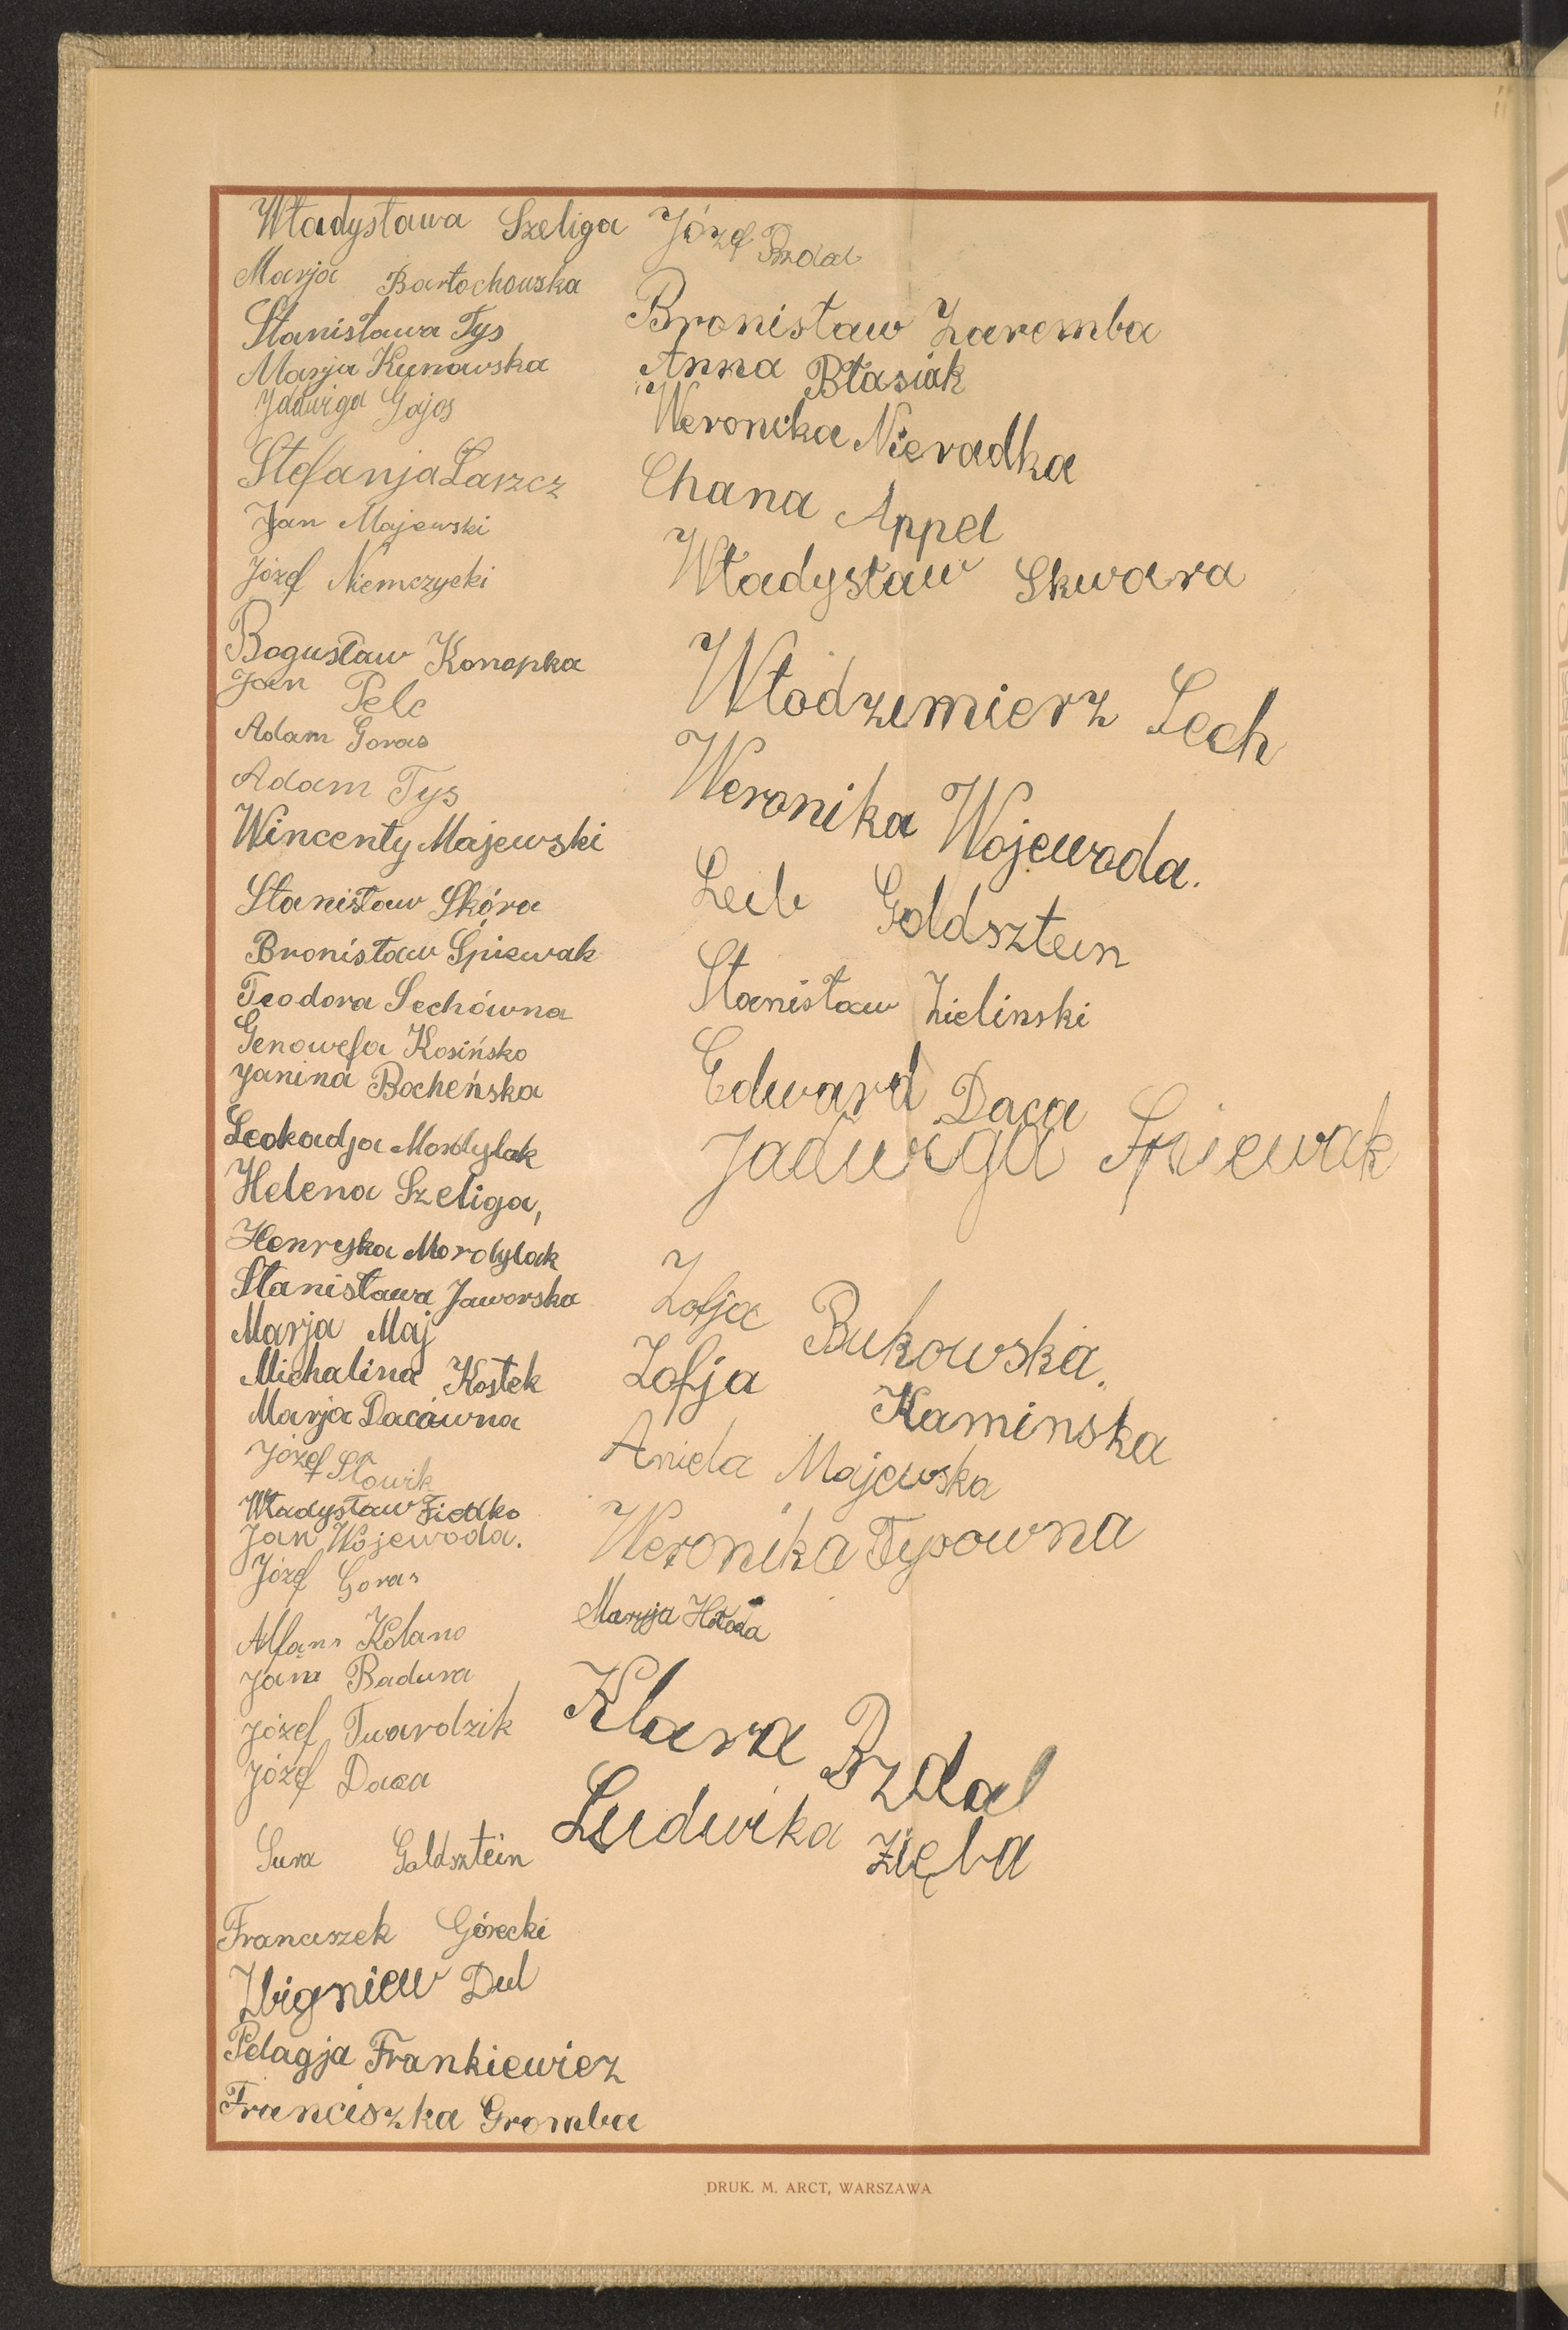 Władysława Szeliga
Marja Bartochowska
Stanisława Tys
Marja Kunowska
Jadwiga Gajos
Stefanja Łarzcz
Jan Majewski
Józef Niemczycki
Bogusław Konopka
Jan Pelc
Adam Goras
Adam Tys
Wincenty Majewski
Stanisław Skóra
Bronisław Śpiewak
Teodora Lechówna
Genowefa Kosińsko
Janina Bocheńska
Leokadja Mordylak
Helena Szeliga,
Henryka Mordylak
Stanisława Jaworska
Marja Maj
Michalina Kostek
Marja Dacówna
Józef Słowik
Władysław Fiedko
Jan Wojewoda.
Józef Goras
Alfons Kolano
Jan Badura
Józef Twardzik
Józef Daca
Sura Goldsztein
Franciszek Górecki
Zbigniew Dul
Pelagja Frankiewicz
Franciszka Gromba
Józef Bzdal
Bronisław Zaremba
Anna Błasiak
Weronika Nieradka
Chana Appel
Władysław Skwara
Włodzimierz Lech
Weronika Wojewoda.
Leib Goldsztein
Stanisław Zielinski
Edward Daca
Jadwiga Śpiewak
Zofja Bukowska.
Zofja Kaminska
Aniela Majewska
Weronika Tysowna
Maryja
Klara Bzdal
Ludwika Zięba
DRUK. M. ARCT, WARSZAWA